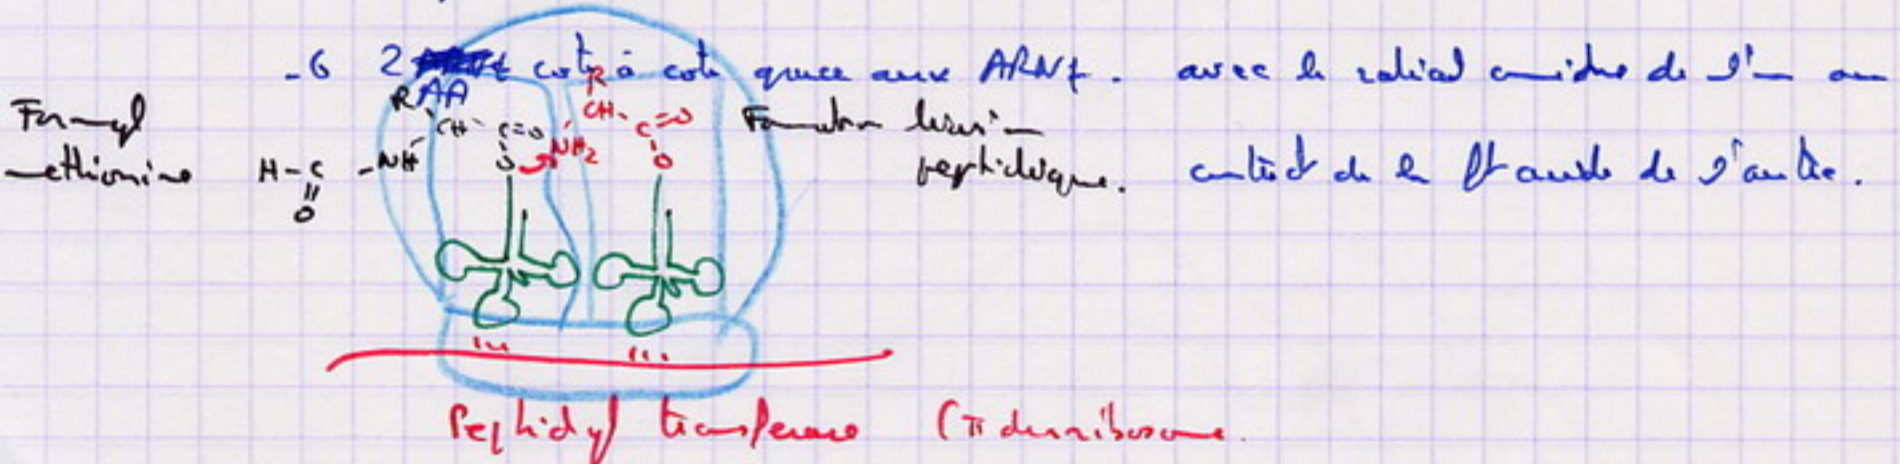 -6 2 AA cote à cote grace aux ARNt. avec le radical amidue de l'un au
contact de la fct acide de l'autre.
Formyl
methionine
H-C-NH
O
R
CH C=O
O
R
CH C=O
NH2 O
Formation liaison
peptidique.
Peptidyl transferase (π du ribosome.